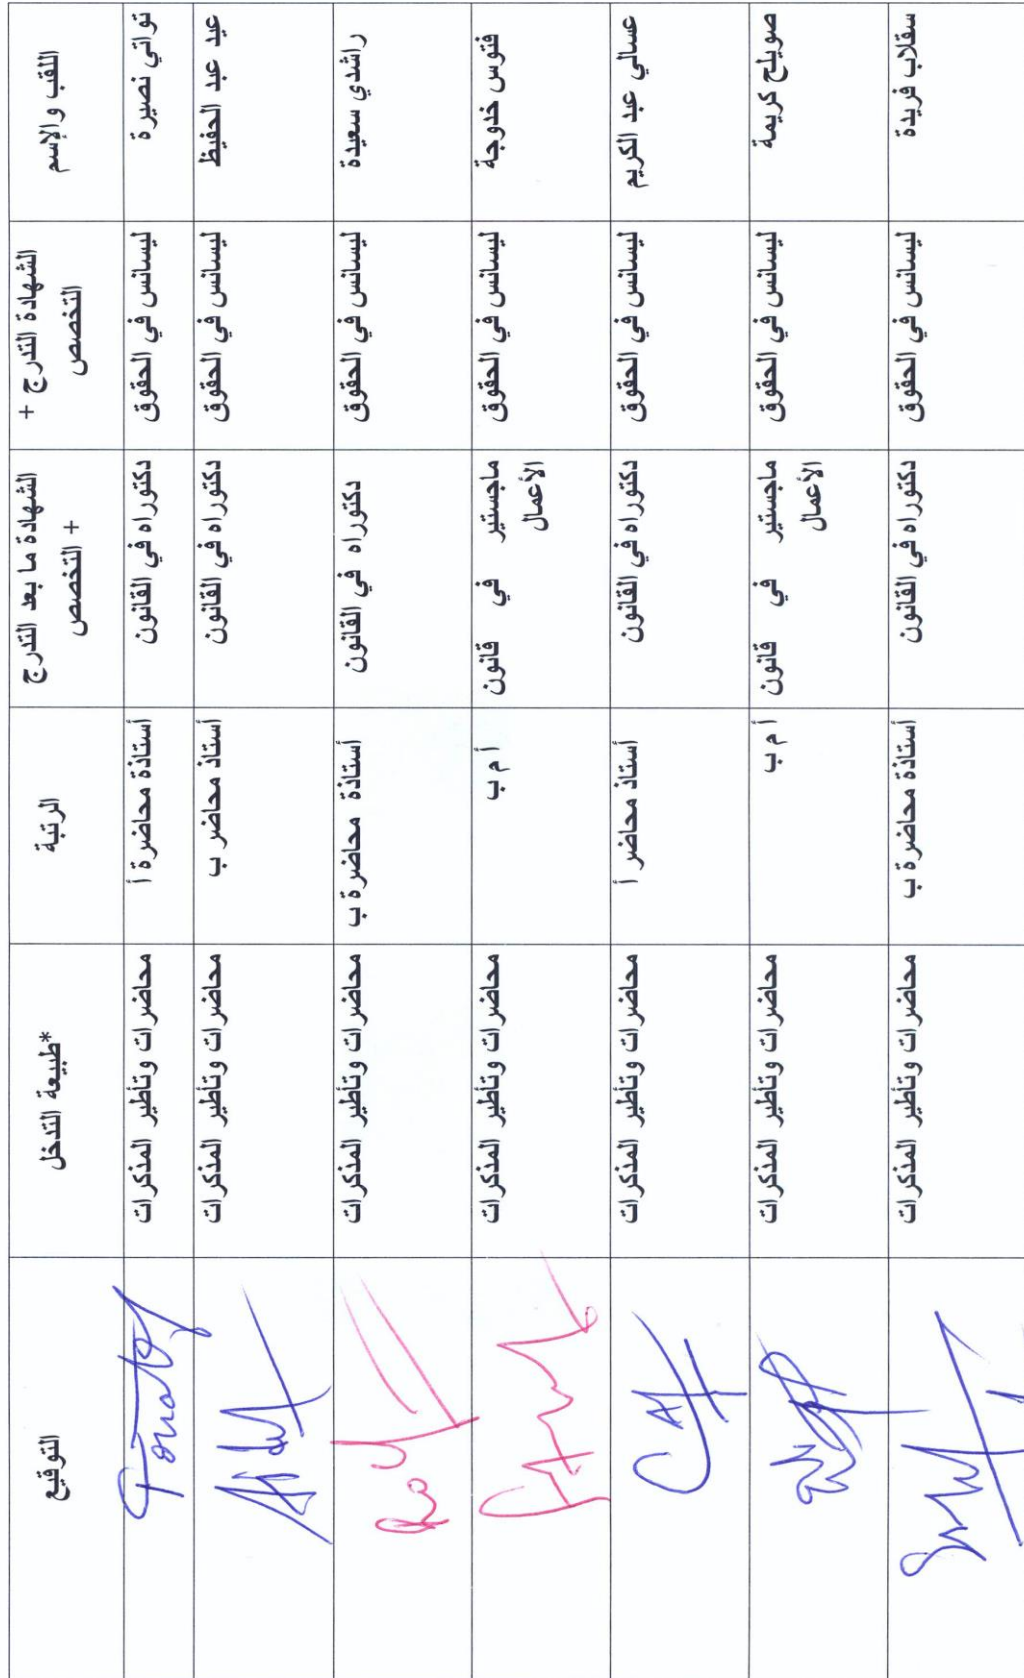 اللقب والإسم
الشهادة التدرج +
التخصص
الشهادة ما بعد التدرج
+ التخصص
الرتبة
طبيعة التدخل*
التوقيع
تواتي نصيرة
ليسانس في الحقوق
دكتوراه في القانون
أستاذة محاضرة أ
محاضرات وتأطير المذكرات
عيد عبد الحفيظ
ليسانس في الحقوق
دكتوراه في القانون
أستاذ محاضر ب
محاضرات وتأطير المذكرات
راشدي سعيدة
ليسانس في الحقوق
دكتوراه في القانون
أستاذة محاضرة ب
محاضرات وتأطير المذكرات
فتوس خدوجة
ليسانس في الحقوق
ماجستير في قانون
الأعمال
أ م ب
محاضرات وتأطير المذكرات
عسالي عبد الكريم
ليسانس في الحقوق
دكتوراه في القانون
أستاذ محاضر أ
محاضرات وتأطير المذكرات
صويلح كريمة
ليسانس في الحقوق
ماجستير في قانون
الأعمال
أ م ب
محاضرات وتأطير المذكرات
سقلاب فريدة
ليسانس في الحقوق
دكتوراه في القانون
أستاذة محاضرة ب
محاضرات وتأطير المذكرات